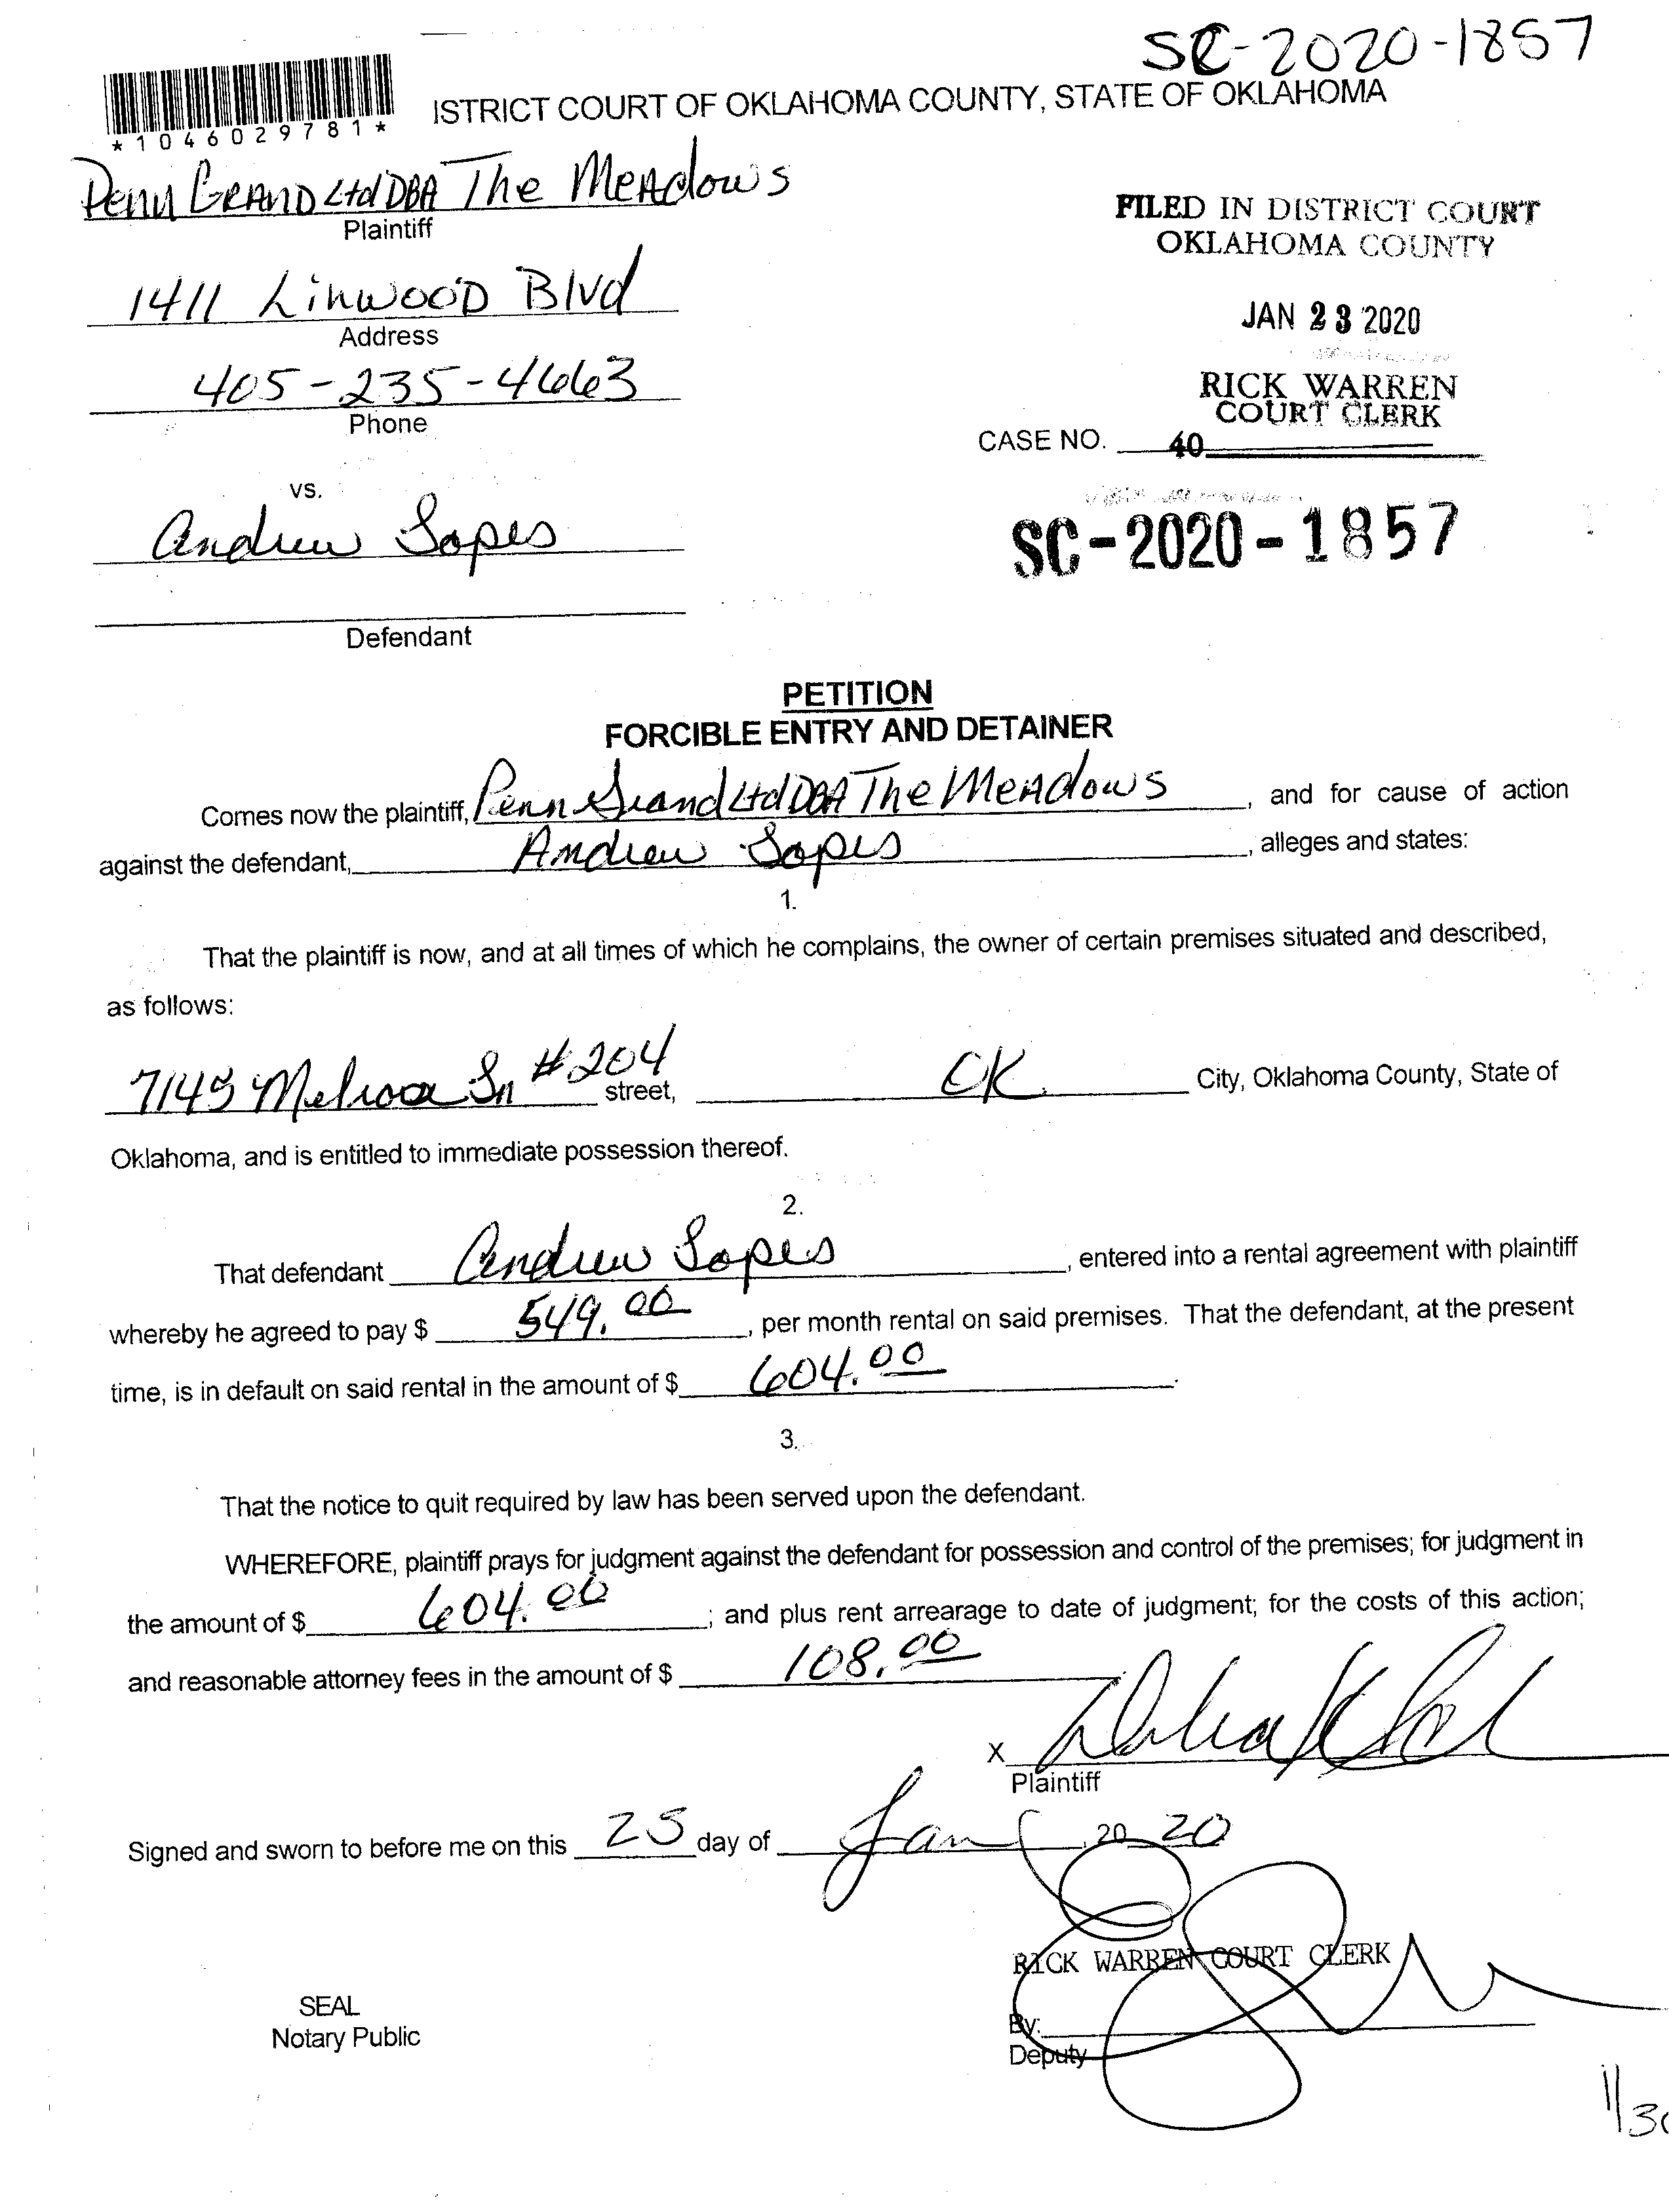 SC-2020-1857
*1046029781*
ISTRICT COURT OF OKLAHOMA COUNTY, STATE OF OKLAHOMA
Penn Grand Ltd DBA The Meadows
Plaintiff
FILED IN DISTRICT COURT
OKLAHOMA COUNTY
1411 Linwood Blvd
Address
JAN 23 2020
405-235-4663
Phone
RICK WARREN
COURT CLERK
CASE NO. 40
vs.
Andrew Lopes
SC-2020-1857
Defendant
PETITION
FORCIBLE ENTRY AND DETAINER
Comes now the plaintiff, Penn Grand Ltd DBA The Meadows, and for cause of action
against the defendant, Andrew Lopes, alleges and states:
1.
That the plaintiff is now, and at all times of which he complains, the owner of certain premises situated and described,
as follows:
7145 Melrose Ln #204 street, OK City, Oklahoma County, State of
Oklahoma, and is entitled to immediate possession thereof.
2.
That defendant Andrew Lopes, entered into a rental agreement with plaintiff
whereby he agreed to pay $ 549.00, per month rental on said premises. That the defendant, at the present
time, is in default on said rental in the amount of $ 604.00.
3.
That the notice to quit required by law has been served upon the defendant.
WHEREFORE, plaintiff prays for judgment against the defendant for possession and control of the premises; for judgment in
the amount of $ 604.00; and plus rent arrearage to date of judgment; for the costs of this action;
and reasonable attorney fees in the amount of $ 108.00
X
Plaintiff
Signed and sworn to before me on this 23 day of Jan, 20 20
RICK WARREN COURT CLERK
SEAL
Notary Public
By:
Deputy